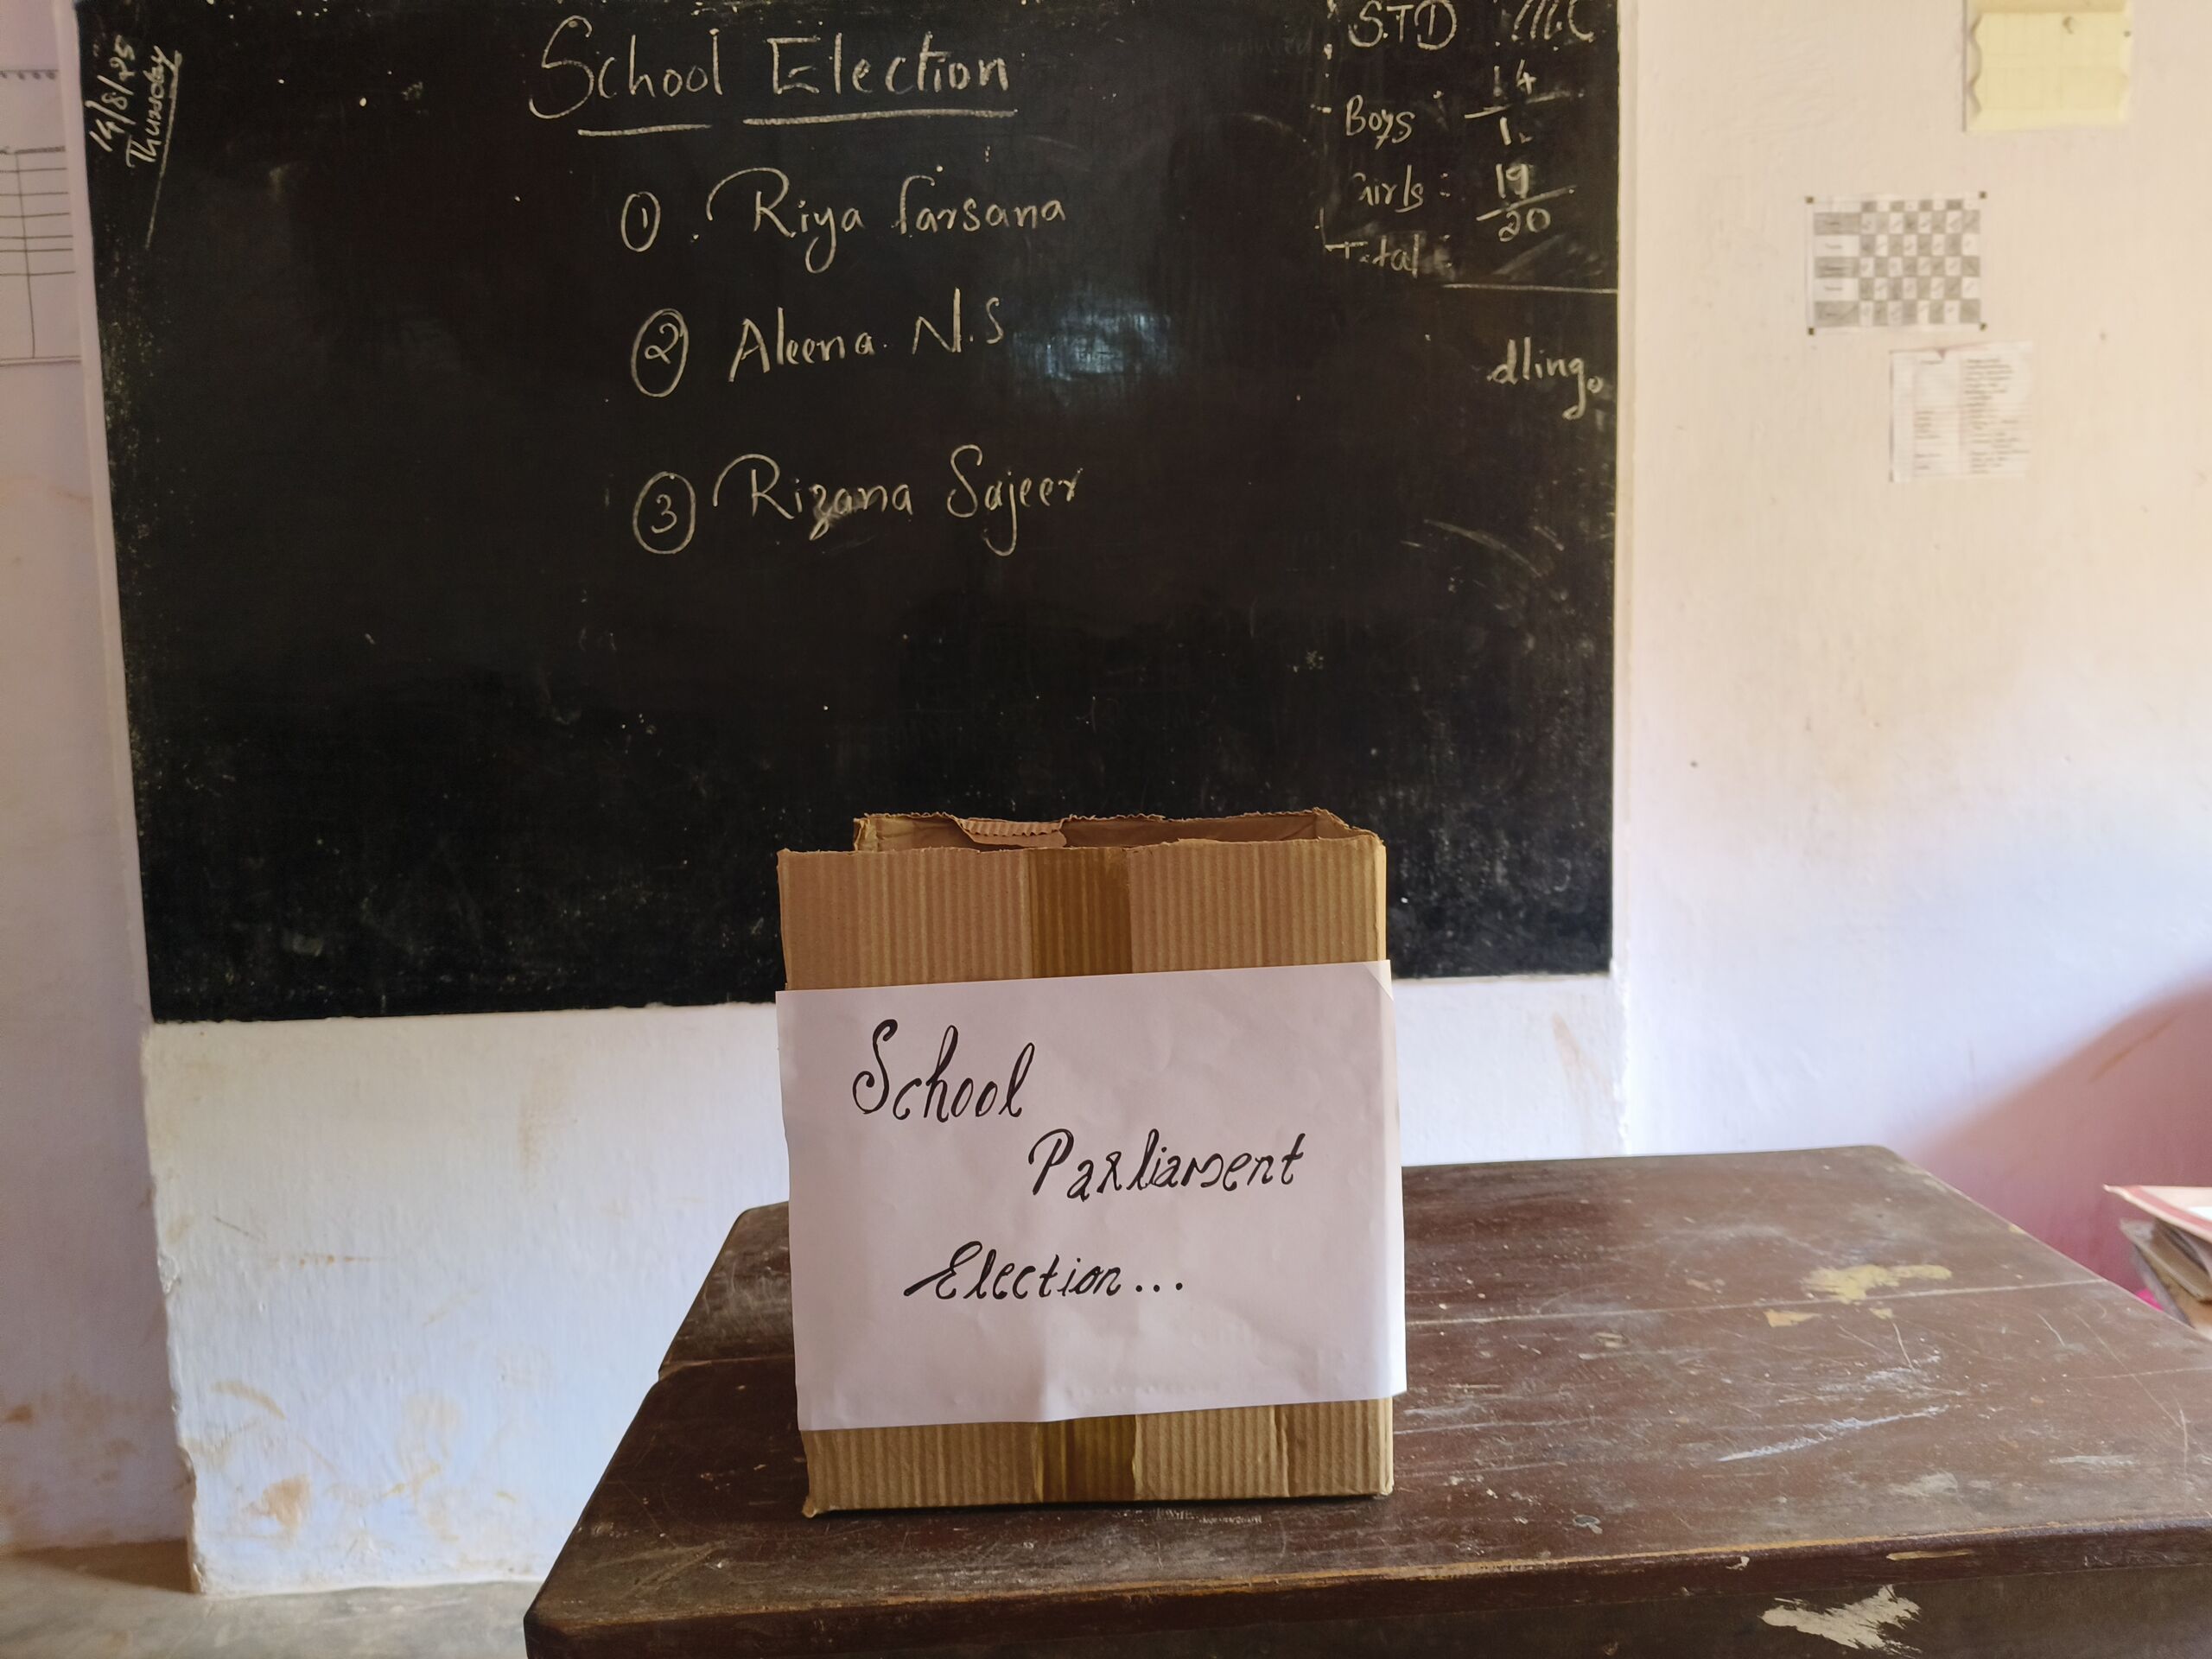 14/8/25
Thursday
School Election
① Riya farsana
② Aleena. N.S
③ Rizana Sajeer
STD
Boys : 14
Girls : 19
20
Total
dling.
School
Parliament
Election...